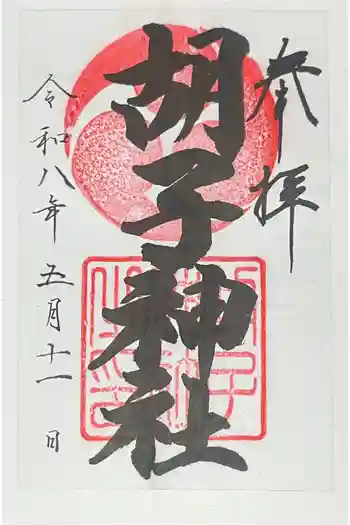 奉拝
胡子神社
令和八年五月十一日